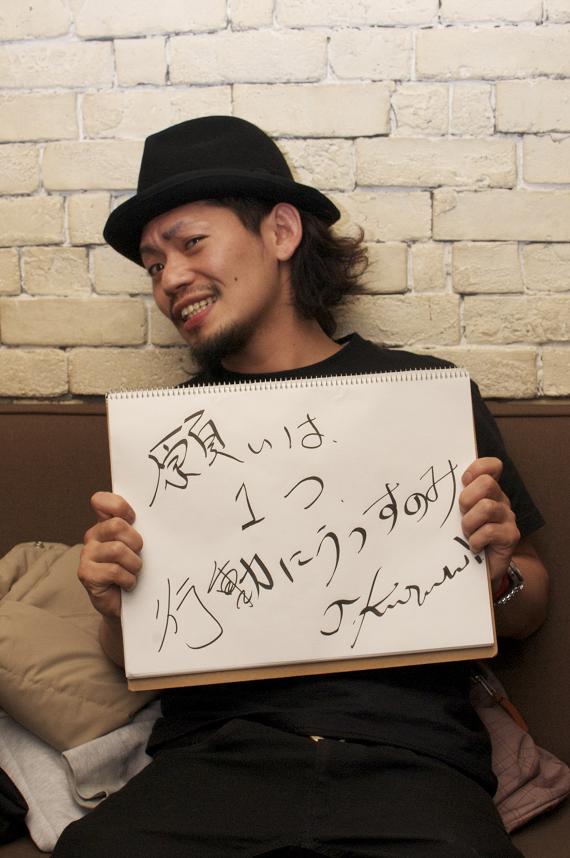 願いは、
1つ、
行動にうつすのみ!!
J.Kuruu